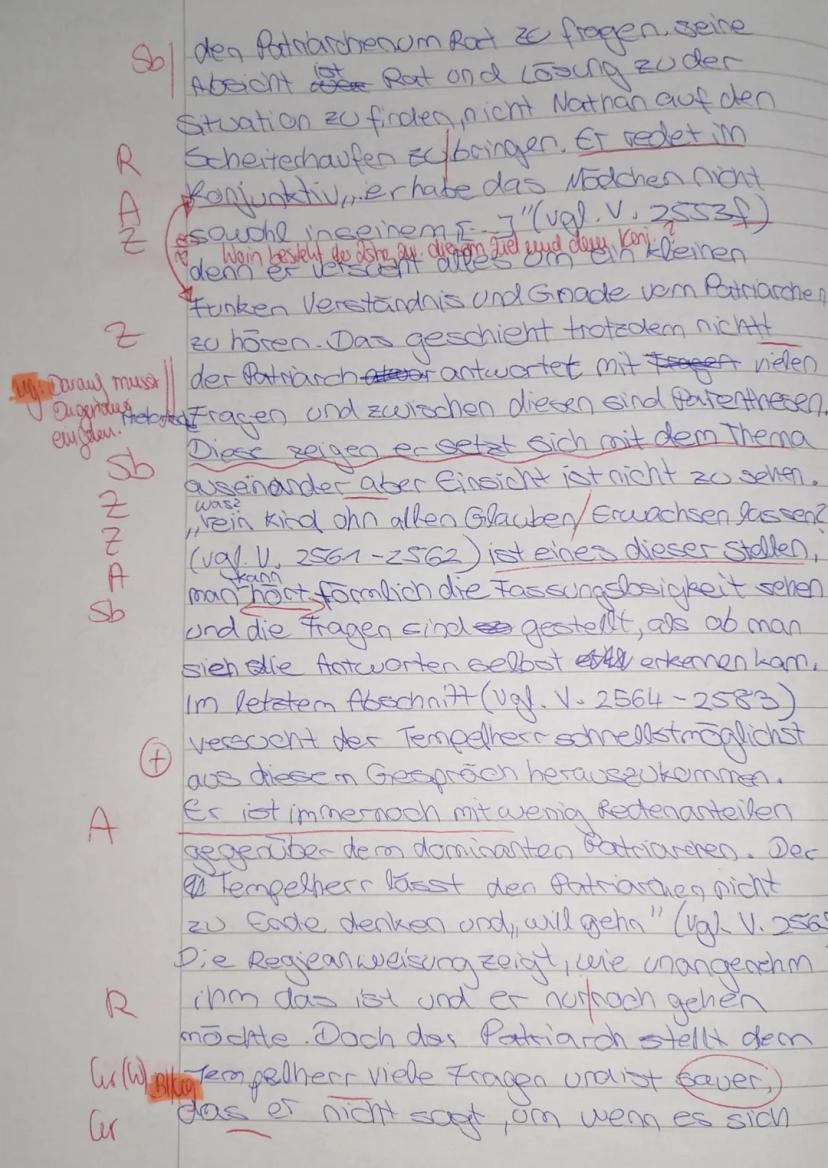 Sb den Patriarchen um Rat zu fragen. seine
Absicht ist Rat und Lösung zu der
Situation zu finden, nicht Nathan auf den
R Scheiterhaufen zu bringen. Er redet im
A Konjunktiv „er habe das Mädchen nicht
Z sowohl in seinem [...]" (vgl. V. 2553f)
Worin besteht der dem Ziel und dem Konj.?
denn er versucht alles um ein kleinen
Funken Verständnis und Gnade vom Patriarchen
Z zu hören. Das geschieht trotzdem nicht
der Patriarch antwortet mit Fragen vielen
Darauf musst
Fragen und zwischen diesen sind Parenthesen.
eingehen.
Diese zeigen er setzt sich mit dem Thema
Sb auseinander aber Einsicht ist nicht zu sehen.
was?
Z „ein Kind ohn allen Glauben / Erwachsen lassen?
Z (vgl. V. 2561-2562) ist eines dieser Stellen,
kann
A man hört förmlich die Fassungslosigkeit sehen
Sb und die Fragen sind gestellt, als ob man
sich die Antworten selbst erkennen kann.
Im letztem Abschnitt (vgl. V. 2564-2583)
versucht der Tempelherr schnellstmöglichst
+ aus diesem Gespräch herauszukommen.
A Er ist immernoch mit wenig Redenanteilen
gegenüber dem dominanten Patriarchen. Der
Tempelherr lässt den Patriarchen nicht
zu Ende denken und „will gehn" (vgl. V. 256
Die Regieanweisung zeigt, wie unangenehm
R ihm das ist und er nur noch gehen
möchte. Doch der Patriarch stellt dem
Gr(W) Tempelherr viele Fragen und ist sauer,
Gr das er nicht sagt, um wenn es sich